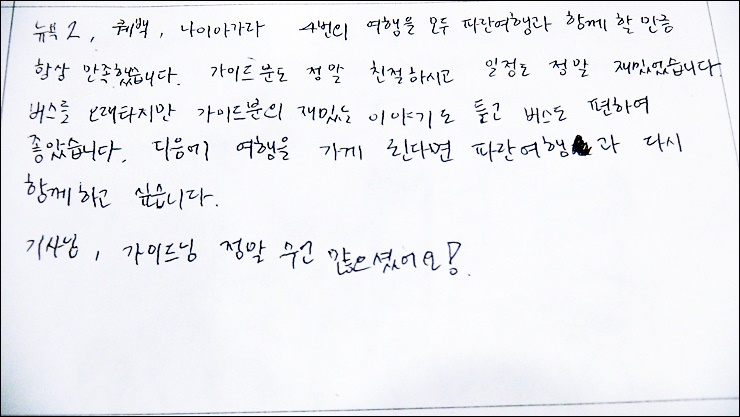 뉴욕2, 퀘백, 나이아가라 4번의 여행을 모두 파란여행과 함께 할 만큼
항상 만족했습니다. 가이드분도 정말 친절하시고 일정도 정말 재밌었습니다.
버스를 오래타지만 가이드분의 재밌는 이야기도 듣고 버스도 편하여
좋았습니다. 다음에 여행을 가게 된다면 파란여행과 다시
함께하고 싶습니다.
기사님, 가이드님 정말 수고 많으셨어요!